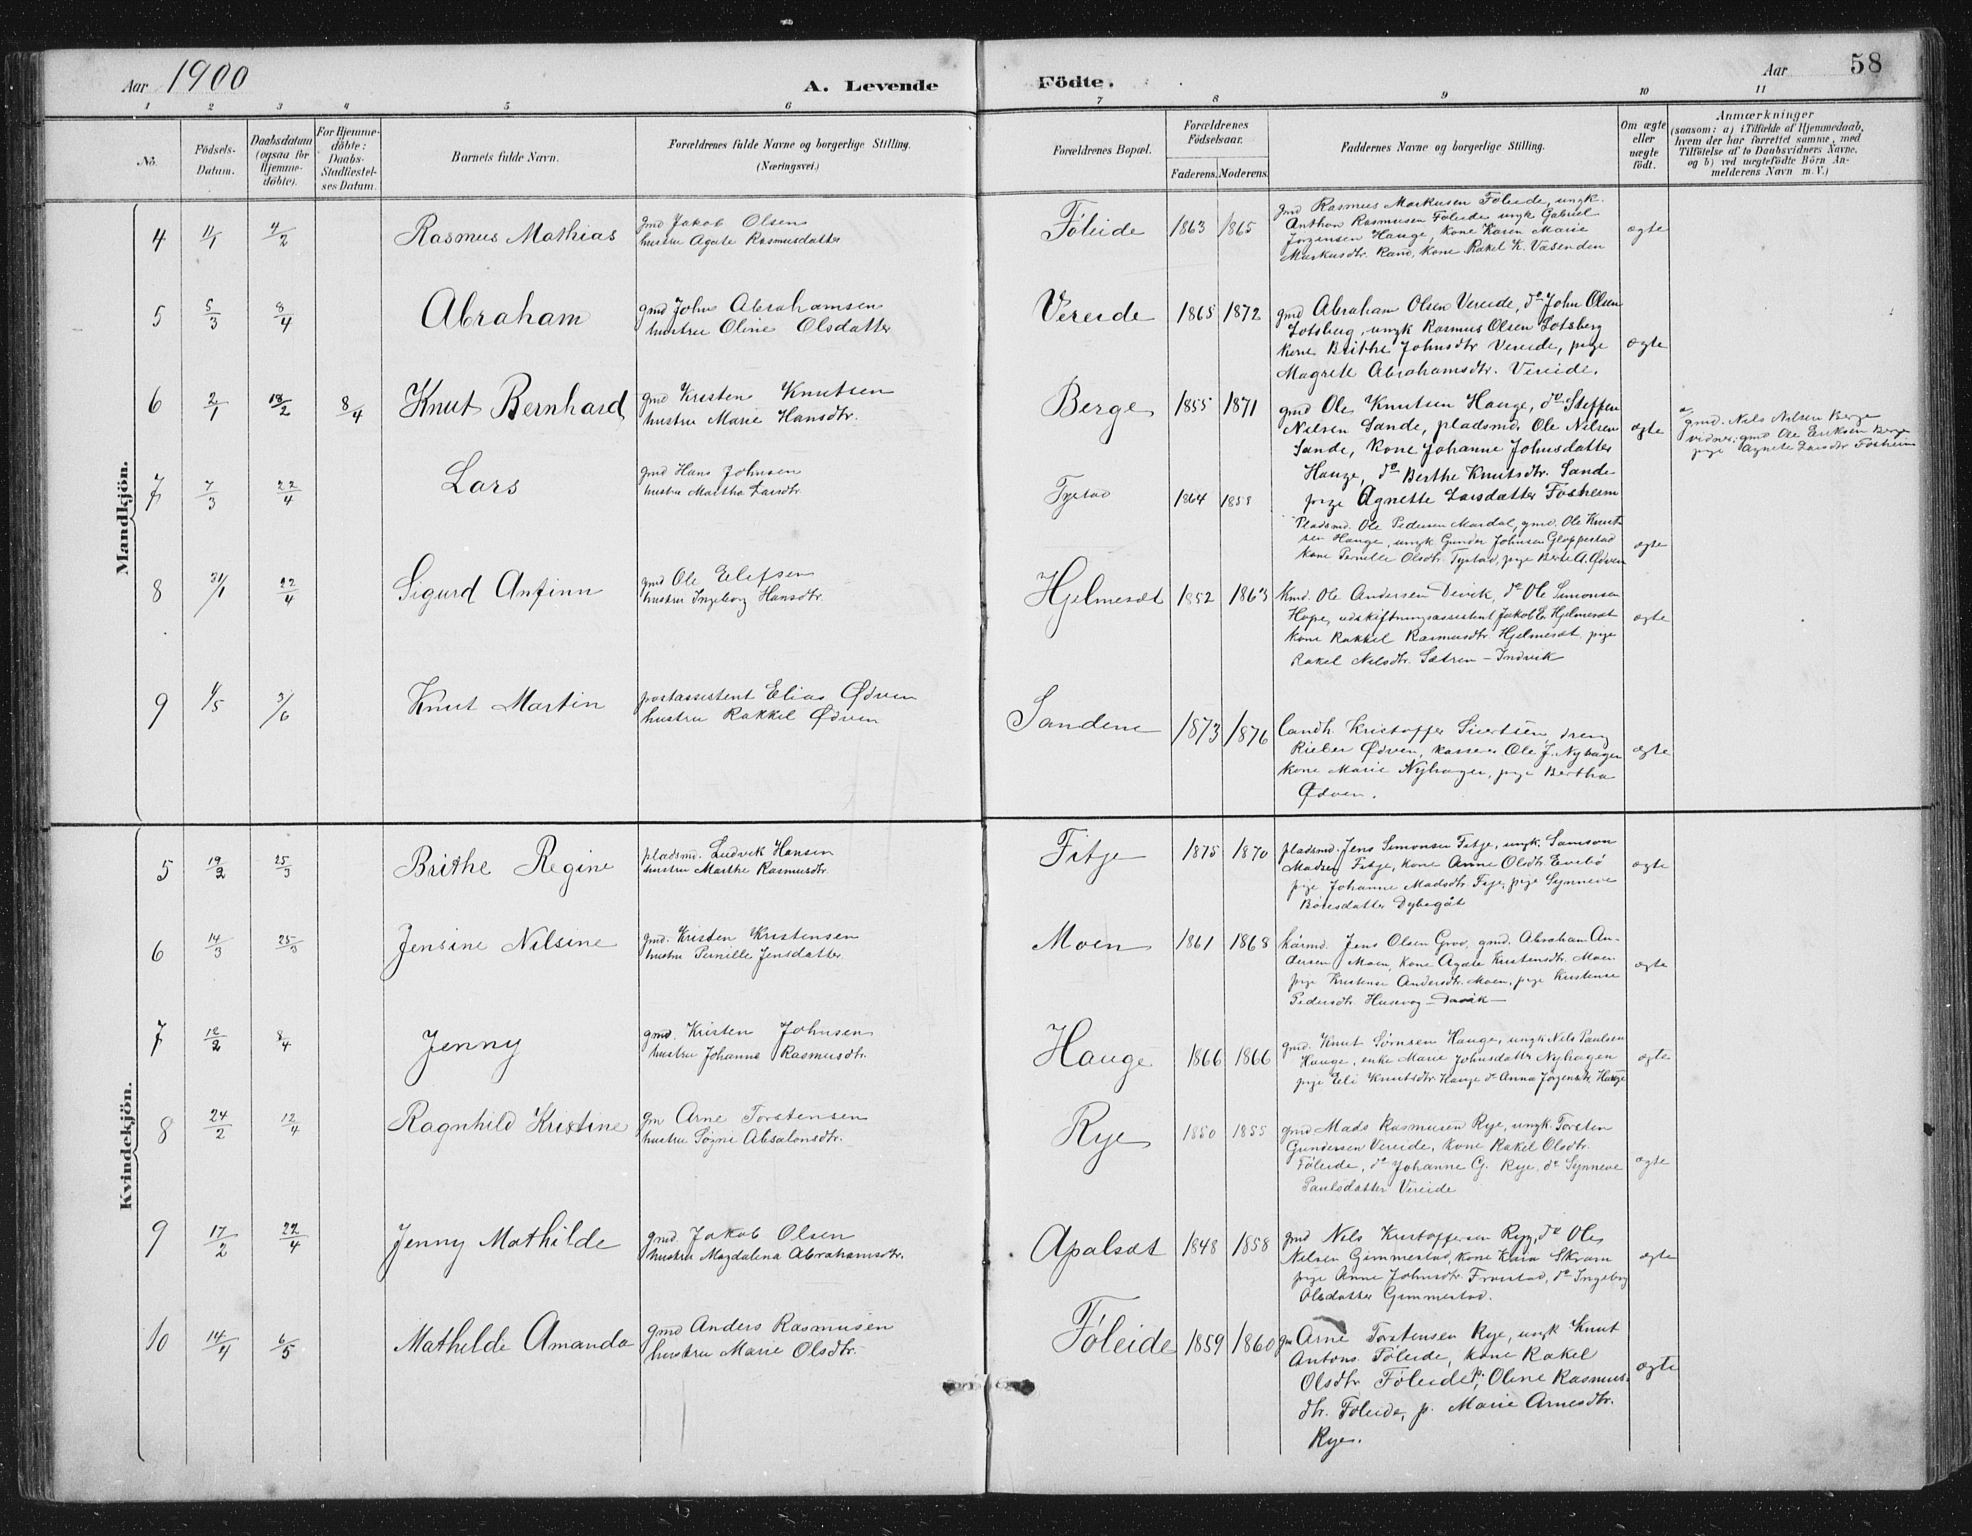 Aar 1900
A. Levende Födte.
Aar 58
1 2 3 4 5 6 7 8 9 10 11
No.
Födsels-Datum.
Daabsdatum (ogsaa for Hjemme-döbte).
For Hjemme-döbte: Daabs-Stadfæstel-ses Datum.
Barnets fulde Navn.
Forældrenes fulde Navne og borgerlige Stilling. (Næringsvei.)
Forældrenes Bopæl.
Forældrenes Födselsaar.
Faderens. Moderens.
Faddernes Navne og borgerlige Stilling.
Om ægte eller uægte födt.
Anmærkninger
(saasom: a) i Tilfælde af Hjemmedaab, hvem der har forrettet samme, med Tilföielse af to Daabsvidners Navne, og b) ved uægtefödte Börn An-melderens Navn m. V.)
Mandkjön.
4 11/1 4/2 Rasmus Mathias
gmd Jakob Olsen
hustru Agate Rasmusdatter
Føleide 1863 1865
gmd Rasmus Markusen Føleide, ungk.
Anthon Rasmusen Føleide ungk Gabriel
Jørgensen Hauge, kone Karen Marie
Markusdtr. Rand, kone Rakel K. Vasenden
ægte
5 5/3 8/4 Abraham
gmd John Abrahamsen
hustru Oline Olsdatter
Vereide 1865 1872
gmd Abraham Olsen Vereide, do John Olsen
Lotsberg, ungk Rasmus Olsen Lotsberg
kone Brithe Johnsdtr Vereide, pige
Magrete Abrahamsdtr. Vereide.
ægte
6 2/1 18/2 8/4 Knut Bernhard
gmd Kristen Knutsen
hustru Marie Hansdtr.
Berge 1855 1871
gmd Ole Knutsen Hauge, do Steffen
Nilsen Sande, pladsmd. Ole Nilsen
Sande, kone Johanne Johnsdatter
Hauge, do Berthe Knutsdtr. Sande
pige Agnette Larsdatter Fosheim
ægte
a/ gmd. Nils Nilsen Berge
vidner: gmd Ole Eriksen Berge
pige Agnete Larsdtr Fosheim
7 7/3 22/4 Lars
gmd Hans Johnsen
hustru Martha Larsdtr.
Tystad 1864 1858
Pladsmd. Ole Pedersen Mardal, gmd. Ole Knut
sen Hauge, ungk Gunder Johnsen Gloppestad
kone Pernille Olsdtr. Tystad, pige Berte A. Ødven
ægte
8 31/1 22/4 Sigurd Anfinn
gmd Ole Elefsen
hustru Ingeborg Hansdtr.
Hjelmesæt 1852 1863
kmd. Ole Andersen Devik, do Ole Simonsen
Hope, udskiftningsassistent Jakob E. Hjelmesæt
kone Rakkel Rasmusdtr Hjelmesæt, pige
Rakel Nilsdtr. Sætren – Indvik
ægte
9 4/5 3/6 Knut Martin
postassistent Elias Ødven
hustru Rakkel Ødven
Sandene 1873 1876
landh. Kristoffer Sivertsen, dreng
Rieber Ødven, kasserer Ole J. Nyhagen
kone Marie Nyhagen, pige Bertha
Ødven.
ægte
Kvindekjön.
5 19/2 25/3 Brithe Regine
pladsmd. Ludvik Hansen
hustru Marthe Rasmusdtr.
Fitje 1875 1870
pladsmd. Jens Simonsen Fitje, ungk. Samson
Madsen Fitje, kone Anne Olsdtr Evebø
pige Johanne Madsdtr Fitje, pige Synneve
Børesdatter Dybegåt
ægte
6 14/3 25/3 Jensine Nilsine
gmd. Kristen Kristensen
hustru Pernille Jensdatter
Moen 1861 1868
kårmd. Jens Olsen Groo, gmd. Abraham An-
dersen Moen, kone Agate Kristensdtr. Moen
pige Kristense Andersdtr. Moen, pige Kristense
Pedersdtr. Husevog – Davik –
ægte
7 12/2 8/4 Jenny
gmd. Kristen Johnsen
hustru Johanne Rasmusdtr.
Hauge 1866 1866
gmd. Knut Sørnsen Hauge, ungk Nils Paulsen
Hauge, enke Marie Johnsdatter Nyhagen
pige Eli Knutsdtr Hauge do Anna Jørgensdtr Hauge
ægte
8 24/2 12/4 Ragnhild Kristine
gm Arne Torstensen
hustru Søgni Absalonsdtr.
Rye 1850 1855
gmd Mads Rasmusen Rye, ungk. Torsten
Gundersen Vereide, kone Rakel Olsdtr.
Føleide, do Johanne G. Rye, do Synneve
Paulsdatter Vereide
ægte
9 17/2 22/4 Jenny Mathilde
gmd. Jakob Olsen
hustru Magdalena Abrahamsdtr.
Apalsæt 1848 1858
gmd Nils Kristoffersen Ryg, do Ole
Nilsen Gimmestad, kone Kaia Skram
pige Anne Johnsdtr. Fraistad, do Ingeborg
Olsdatter Gimmestad.
ægte
10 14/4 6/5 Mathilde Amanda
gmd Anders Rasmusen
hustru Marie Olsdtr.
Føleide 1859 1860
gm Arne Torstensen Rye, ungk Knut
Antons. Føleide, kone Rakel
Olsdtr Føleide, p. Oline Rasmus-
dtr. Føleide, p. Marie Arnesdtr.
Rye.
ægte